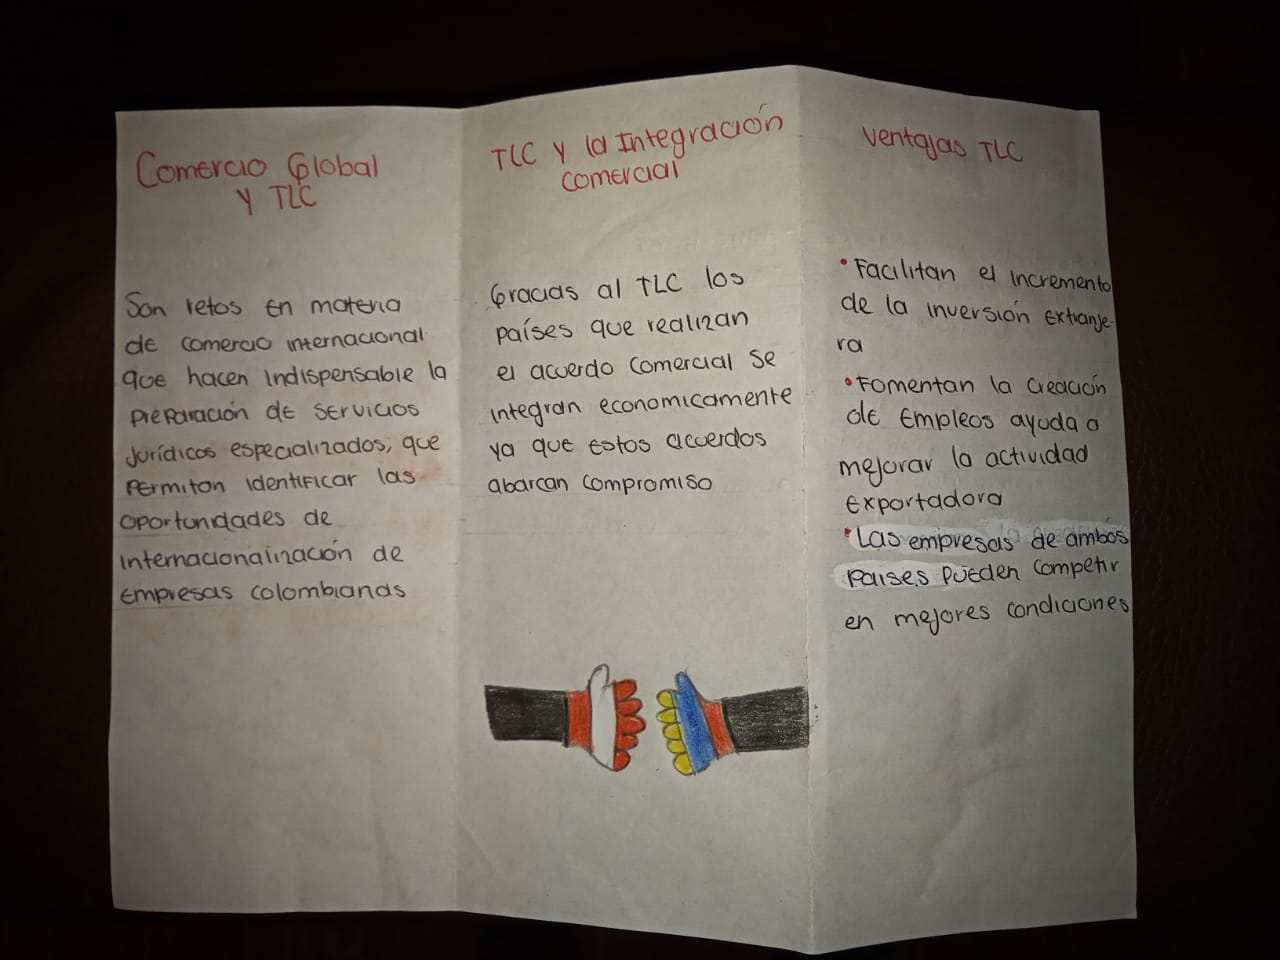 Comercio Global
Y TLC
Son retos en materia
de comercio internacional
que hacen indispensable la
preparación de servicios
jurídicos especializados, que
permiton identificar las
oportunidades de
internacionainzación de
empresas colombianas
TLC y la Integración
comercial
Gracias al TLC los
países que realizan
el acuerdo comercial se
integran economicamente
ya que estos acuerdos
abarcan compromiso
Ventajas TLC
• Facilitan el incremento
de la inversión extranje-
ra
• Fomentan la creación
de empleos ayuda a
mejorar la actividad
exportadora
• Las empresas de ambos
países pueden competir
en mejores condiciones